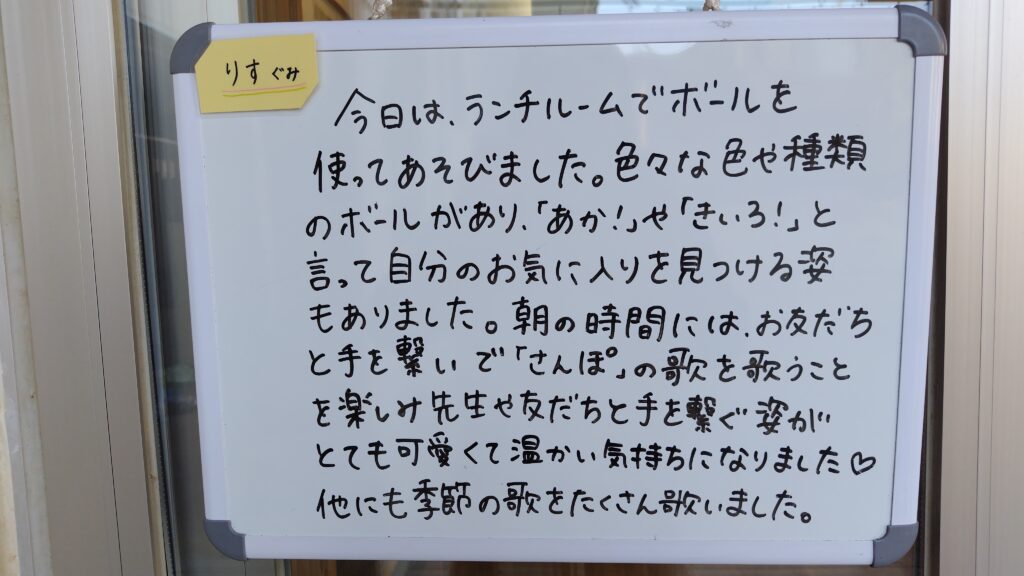 りすぐみ
今日は、ランチルームでボールを
使ってあそびました。色々な色や種類
のボールがあり、「あか!」や「きいろ!」と
言って自分のお気に入りを見つける姿
もありました。朝の時間には、お友だち
と手を繋いで「さんぽ」の歌を歌うこと
を楽しみ先生や友だちと手を繋ぐ姿が
とても可愛くて温かい気持ちになりました♡
他にも季節の歌をたくさん歌いました。